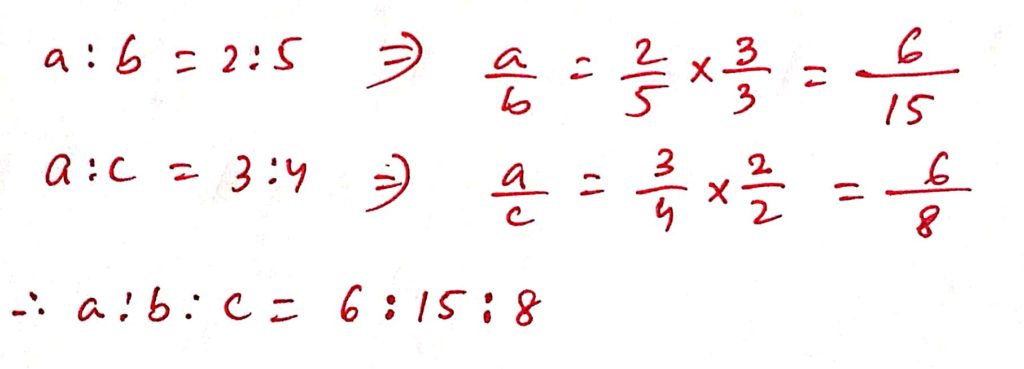 a : b = 2 : 5 ⇒ a/b = 2/5 × 3/3 = 6/15
a : c = 3 : 4 ⇒ a/c = 3/4 × 2/2 = 6/8
∴ a : b : c = 6 : 15 : 8